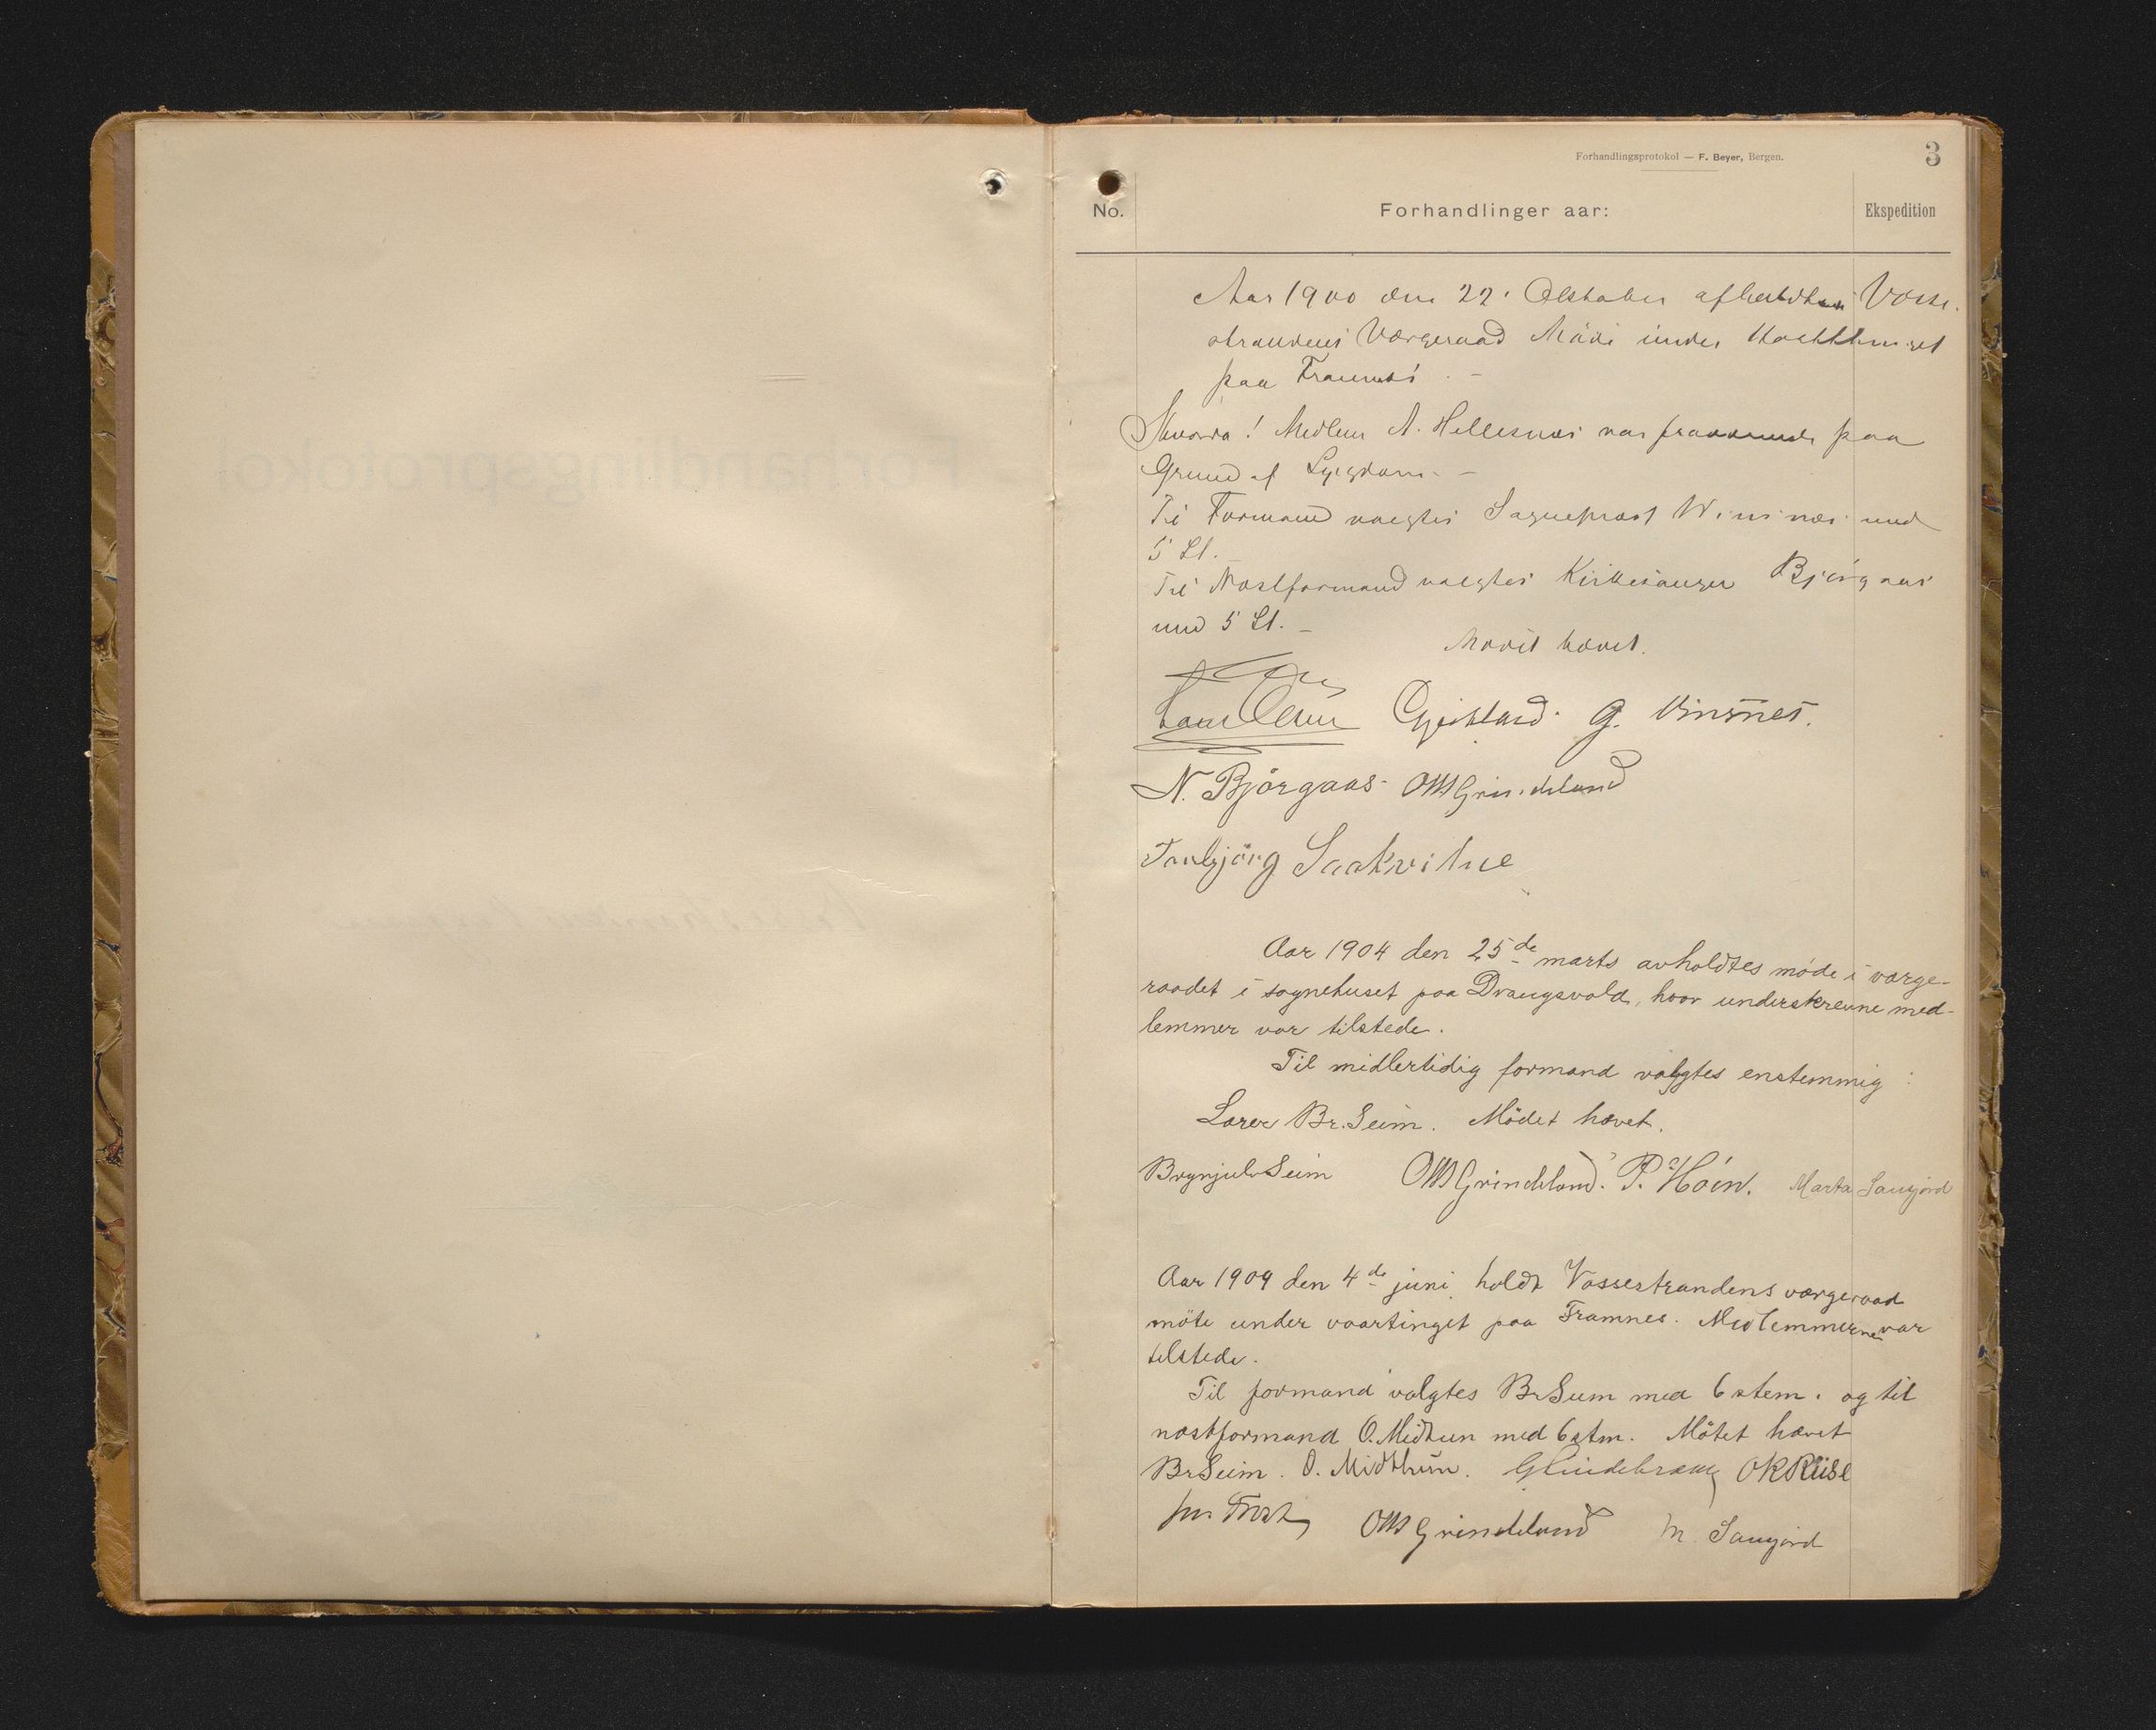 Forhandlingsprotokol — F. Beyer, Bergen.
3
No.
Forhandlinger aar:
Ekspedition
Aar 1900 den 22. Oktober afholdtes Vosse-
strandens Værgeraad Møde under
paa Framnes. –
Medlem A. Hellesnæs var fraværende paa
Grund af Sygdom. –
Til Formand valgtes Sogneprest Winsnes med
5 St.
Til Næstformand valgtes Kirkesanger Bjørgaas
med 5 St. –
Mødet hævet.
G. Vinsnes.
N. Bjørgaas OMGrindeland
Saakvitne
Aar 1904 den 25de marts avholdtes møde i værge-
raadet i sognehuset paa Draugsvold, hvor underskrevne med-
lemmer var tilstede.
Til midlertidig formand valgtes enstemmig:
Lærer Br. Seim. Mødet hævet.
Brynjulv Seim OMGrindeland. P. Höin. Marta Saugjord
Aar 1909 den 4de juni holdt Vossestrandens værgeraad
möte under vaartinget paa Framnes. Medlemmerne var
tilstede.
Til formand valgtes Br Seim med 6 stem. og til
næstformand O. Midtun med 6 stm. Mötet hævet
Br Seim. O. Midthun. GHindebraeg OKRiise
OMGrindeland M. Saugjord
Forhandlingsprotokol